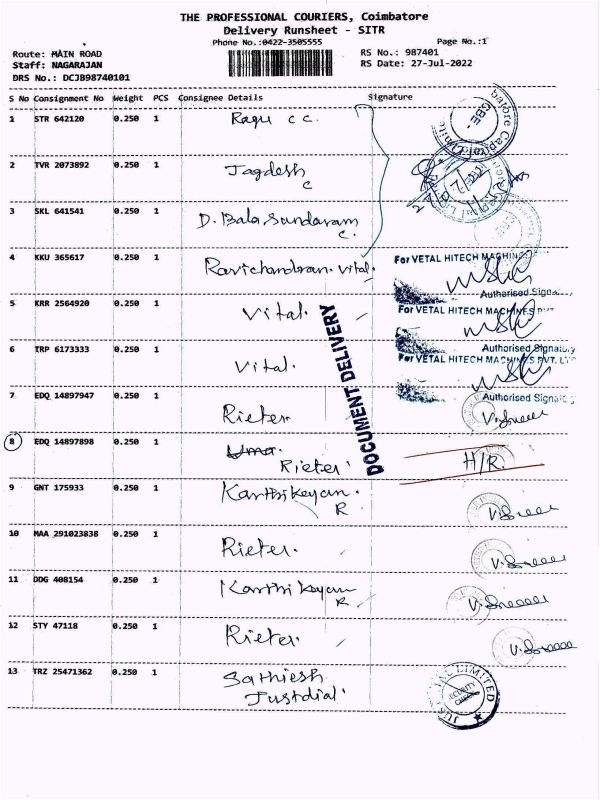 THE PROFESSIONAL COURIERS, Coimbatore
Delivery Runsheet - SITR
Phone No.:0422-3505555
Page No.:1
Route: MAIN ROAD
Staff: NAGARAJAN
DRS No.: DCJB98740101
RS No.: 987401
RS Date: 27-Jul-2022
S No Consignment No Weight PCS Consignee Details Signature
1 STR 642120 0.250 1 Ragu C C.
2 TVR 2073892 0.250 1 Jagdesh
C
3 SKL 641541 0.250 1 D. Bala Sundaram
C.
4 KKU 365617 0.250 1 Ravichandran. Vital.
For VETAL HITECH MACHINES
Authorised Signa
5 KRR 2564920 0.250 1 Vital.
For VETAL HITECH MACHINES PVT.
Authorised Signatory
6 TRP 6173333 0.250 1 Vital.
For VETAL HITECH MACHINES PVT. LTD
Authorised Signatory
DOCUMENT DELIVERY
7 EDQ 14897947 0.250 1 Rieter.
8 EDQ 14897898 0.250 1 Uma.
Rieter H/R.
9 GNT 175933 0.250 1 Karthikeyan.
R
10 MAA 291023838 0.250 1 Rieter.
11 DDG 408154 0.250 1 Karthikeyan
R
12 STY 47118 0.250 1 Rieter.
13 TRZ 25471362 0.250 1 Sathiesh
Justdial
LIMITED
SECURITY